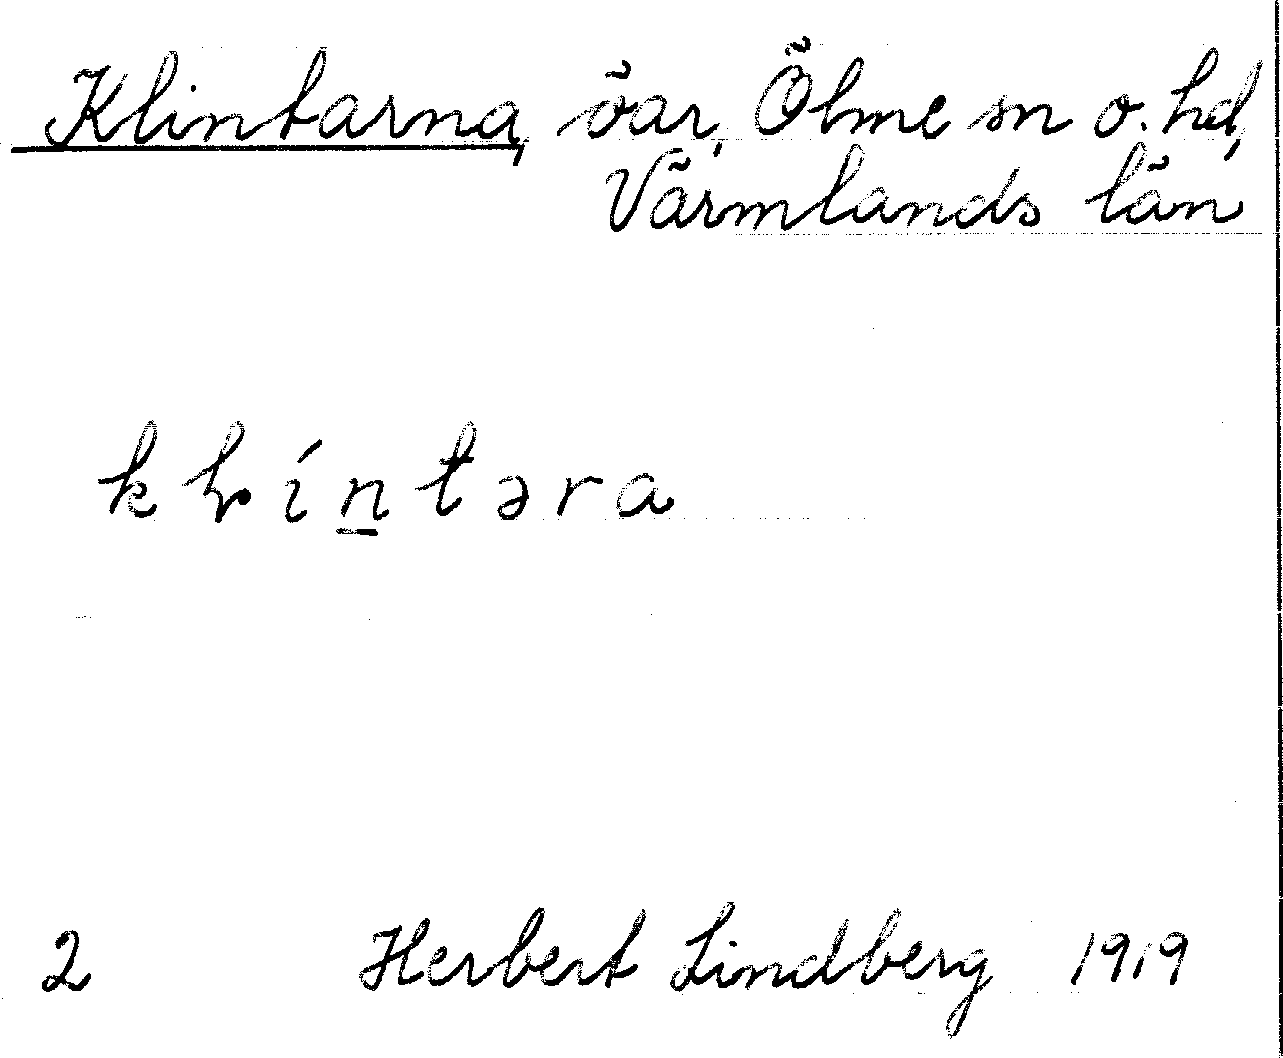 Klintarna, öar, Ölme sn o. hd,
Värmlands län
2 Herbert Lindberg 1919